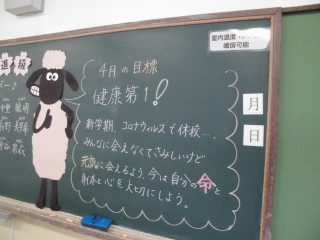 4月の目標
健康第1!
新学期、コロナウィルスで休校…。
みんなに会えなくてさみしいけど
元気に会えるよう、今は自分の命と
身体と心を大切にしよう。
室内温度
暖房可能
月
日
進級